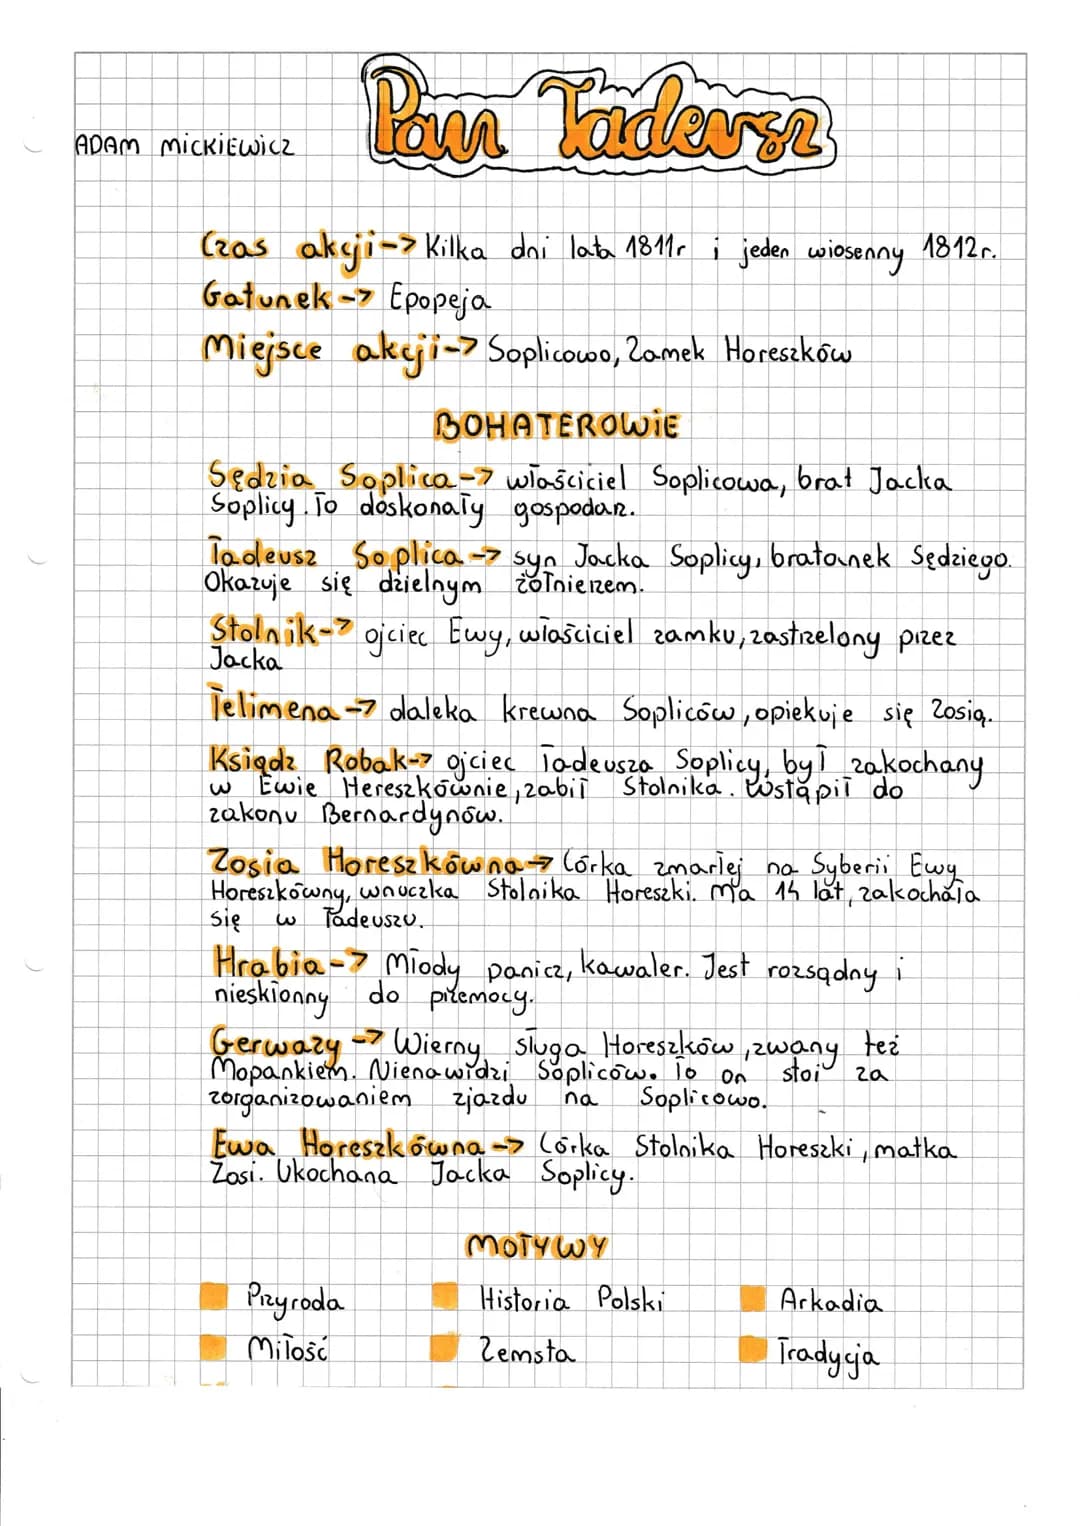 Pan Tadeusz
ADAM MICKIEWICZ
Czas akcji-> Kilka dni lata 1811r i jeden wiosenny 1812r.
Gatunek-> Epopeja
Miejsce akcji-> Soplicowo, Zamek Horeszków
BOHATEROWIE
Sędzia Soplica-> właściciel Soplicowa, brat Jacka
Soplicy. To doskonały gospodarz.
Tadeusz Soplica-> syn Jacka Soplicy, bratanek Sędziego.
Okazuje się dzielnym żołnierzem.
Stolnik-> ojciec Ewy, właściciel zamku, zastrzelony przez
Jacka
Telimena-> daleka krewna Sopliców, opiekuje się Zosią.
Ksiądz Robak-> ojciec Tadeusza Soplicy, był zakochany
w Ewie Hereszkównie, zabił Stolnika. Wstąpił do
zakonu Bernardynów.
Zosia Horeszkówna-> Córka zmarłej na Syberii Ewy
Horeszkówny, wnuczka Stolnika Horeszki. Ma 14 lat, zakochała
się w Tadeuszu.
Hrabia-> Młody panicz, kawaler. Jest rozsądny i
nieskłonny do przemocy.
Gerwazy-> Wierny sługa Horeszków, zwany też
Mopankiem. Nienawidzi Sopliców. To on stoi za
zorganizowaniem zjazdu na Soplicowo.
Ewa Horeszkówna-> Córka Stolnika Horeszki, matka
Zosi. Ukochana Jacka Soplicy.
MOTYWY
Przyroda Historia Polski Arkadia
Miłość Zemsta Tradycja